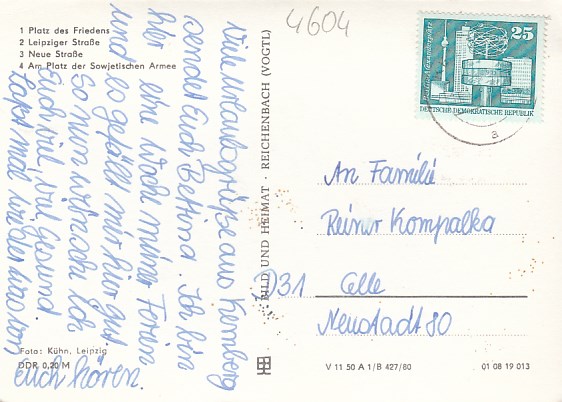 1 Platz des Friedens
2 Leipziger Straße
3 Neue Straße
4 Am Platz der Sowjetischen Armee
4604
25
Berlin, Alexanderplatz
DEUTSCHE DEMOKRATISCHE REPUBLIK
a
Viele Urlaubsgrüße aus Kemberg
sendet Euch Bettina. Ich bin
hier eine Woche meiner Ferien
und es gefällt mir hier gut.
So nun wünsche ich
Euch viel viel Gesund.
Laßt mal wieder was von
euch hören.
BILD UND HEIMAT · REICHENBACH (VOGTL)
An Familie
Reiner Kompalka
D31 Celle
Neustadt 80
Foto: Kühn, Leipzig
DDR 0,20 M
V 11 50 A 1/B 427/80
01 08 19 013